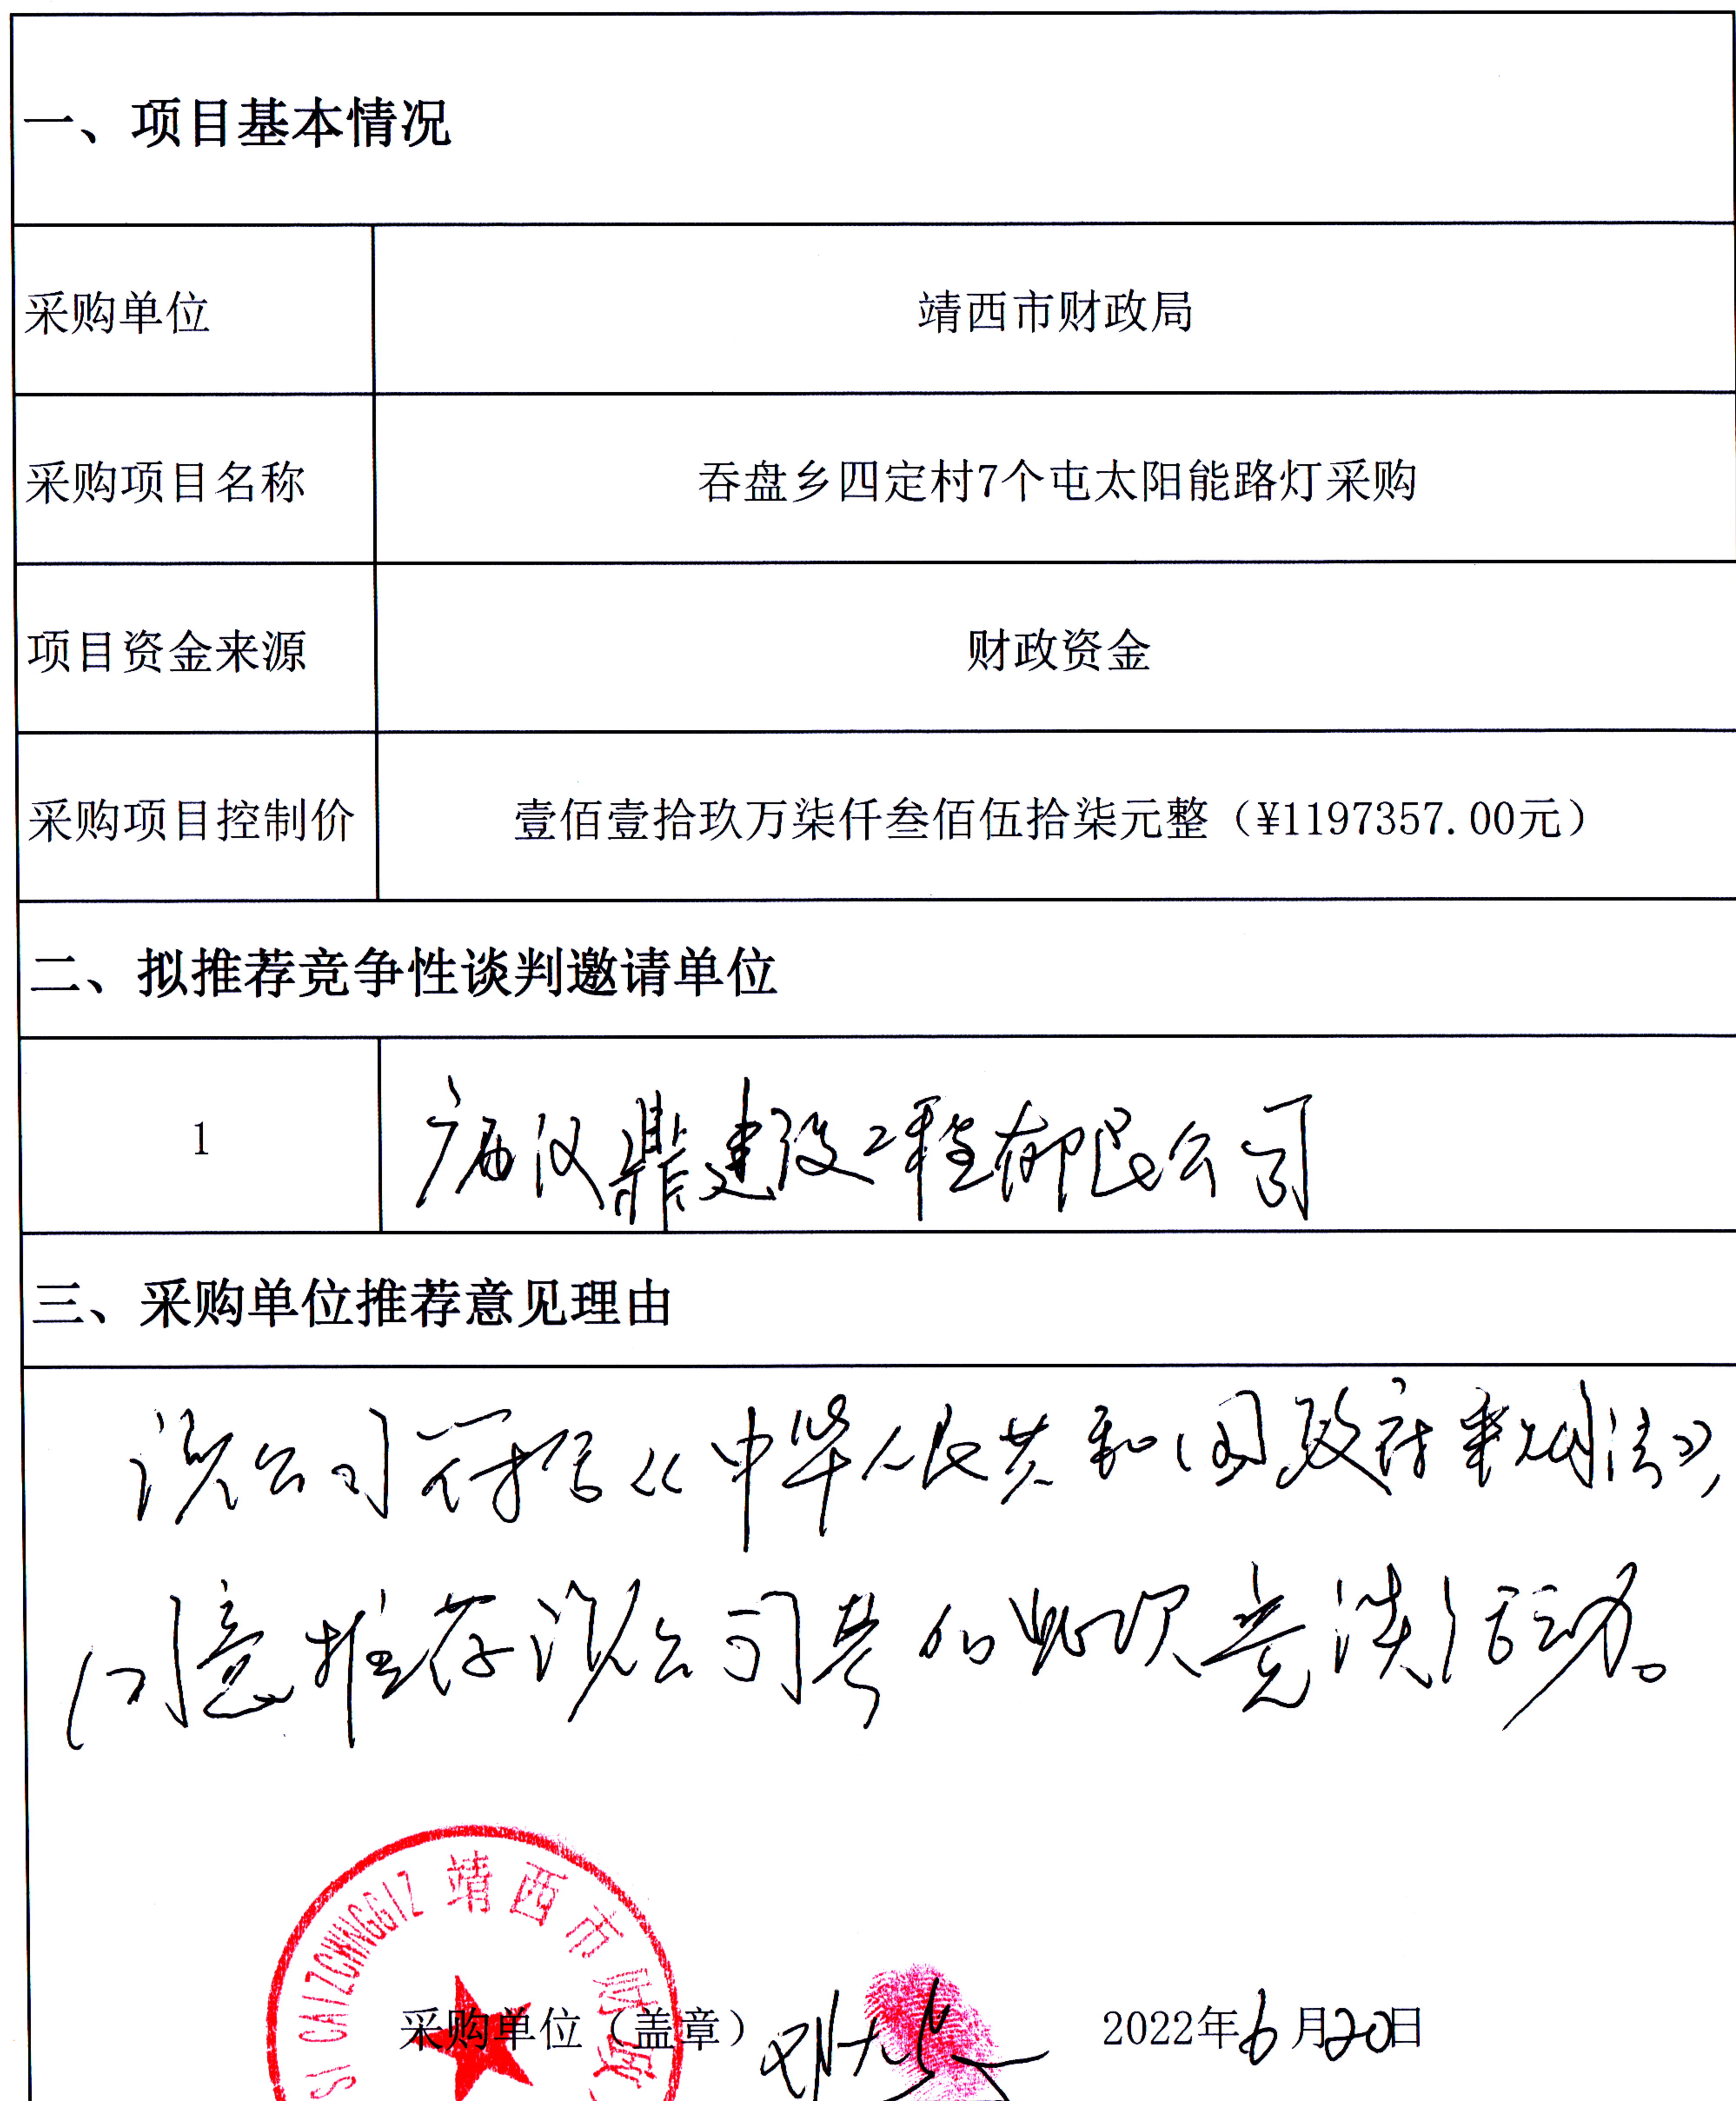 一、项目基本情况
采购单位 靖西市财政局
采购项目名称 吞盘乡四定村7个屯太阳能路灯采购
项目资金来源 财政资金
采购项目控制价 壹佰壹拾玖万柒仟叁佰伍拾柒元整（¥1197357.00元）
二、拟推荐竞争性谈判邀请单位
1 广西汉鼎建设工程有限公司
三、采购单位推荐意见理由
该公司符合《中华人民共和国政府采购法》，
同意推荐该公司参加此次竞谈活动。
SI CAIZCWNGGIZ 靖西市财政
采购单位（盖章） 2022年6月20日